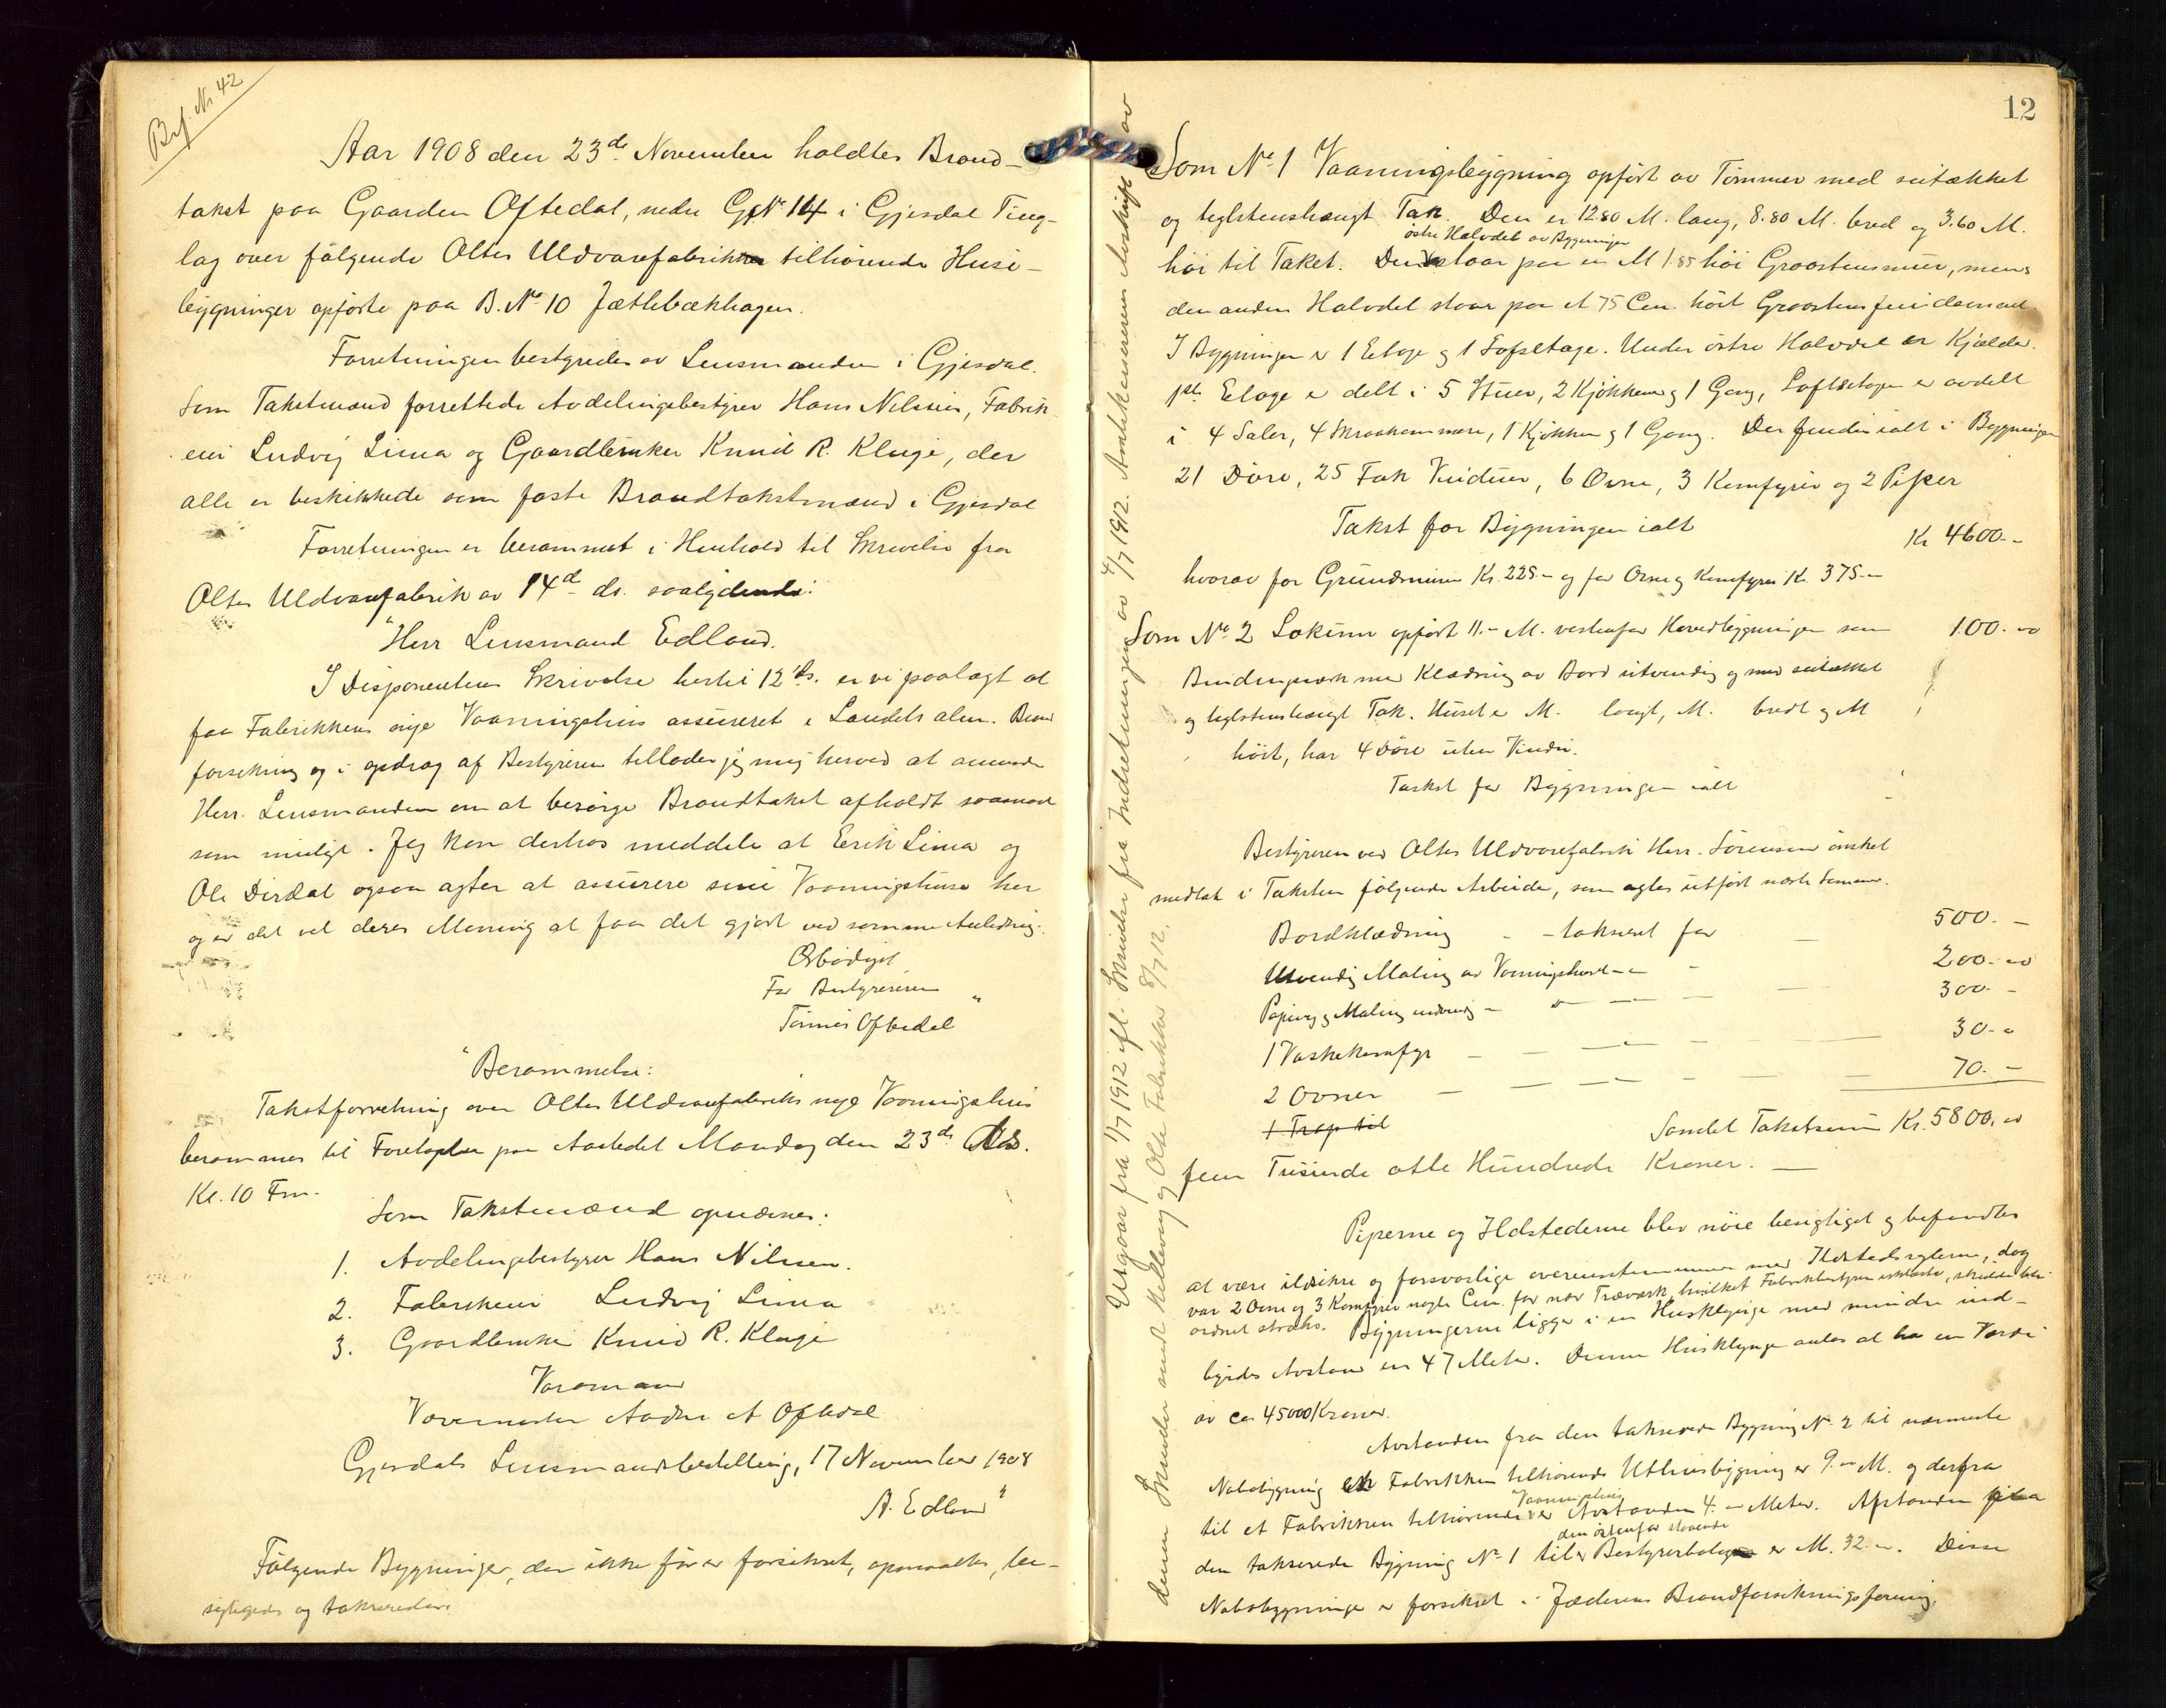 Brf. Nr. 42
Aar 1908 den 23de November holdtes Brand-
takst paa Gaarden Oftedal, nedre GNr 14 i Gjesdal Ting-
lag over følgende Oltes Uldvarefabrik tilhørende Huse-
bygninger opførte paa B. No 10 Jætlebækhagen.
Forretningen bestyredes av Lensmanden i Gjesdal.
Som Takstmænd forrettede Avdelingsbestyrer Hans Nilssen, Fabrik-
eier Ludvig Lima og Gaardbruker Knud R. Kluge, der
alle er beskikkede som faste Brandtakstmænd i Gjesdal
Forretningen er berammet i Henhold til Skrivelse fra
Oltes Uldvarefabrik av 14d ds. saalydende:
"Herr Lensmand Edland.
I Disponentens Skrivelse hertil 12 ds. er vi paalagt at
faa Fabrikkens nye Vaaningshus assureret i Landets alm. Brand
forsikring og i opdrag af Bestyreren tillader jeg mig herved at anmode
Herr. Lensmanden om at besørge Brandtakst afholdt saasnart
som muligt. Jeg kan derhos meddele at Eerik Lima og
Ole Dirdal ogsaa agter at assurere sine Vaaningshuse her
og er det vel deres Mening at faa det gjort ved samme Anledning.
Ærbødigst
For Bestyreren
Tønnes Oftedal"
"Berammelse:
Takstforretning over Oltes Uldvarefabriks nye Vaaningshus
berammes til Foretagelse paa Aastedet Mandag den 23de ds.
Kl. 10 Fm.
Som Takstmænd opnævnes:
1. Avdelingsbestyrer Hans Nilssen.
2. Fabrikeier Ludvig Lima
3. Gaardbruker Knud R. Kluge
Varamand
Vævemester Andre A Oftedal
Gjesdals Lensmandsbestilling, 17 November 1908
A. Edland"
Følgende Bygninger, der ikke før er forsikret, opmaaltes, be-
sigtigedes og takseredes:
12
Som No 1 Vaaningsbygning opført av Tømmer med suttækket
og teglstenshængt Tak. Den er 12.80 M. lang, 8.80 M. bred og 3.60 M.
østre Halvdel av Bygningen
høi til Taket. Den staar paa en M 1.85 høi Graastensmur, mens
den anden Halvdel staar paa et 75 Cm. høit Graastensfundament.
I Bygningen er 1 Etage og 1 Loftsetage. Under østre Halvdel er Kjælder.
1ste Etage er delt i 5 Stuer, 2 Kjøkken og 1 Gang, Loftsetagen er avdelt
i 4 Saler, 4 Skraakammere, 1 Kjøkken og 1 Gang. Der findes ialt i Bygningen
21 Døre, 25 Fak Vinduer, 6 Ovne, 3 Komfyrer og 2 Piper
Takst for Bygningen ialt
Kr 4600.-
hvorav for Grundmuren Kr. 225.- og for Ovne og Komfyrer Kr. 375.-
Som No 2 Lokum opført 11.- M. vestenfor Hovedbygningen som 100.-
Bindingsverk med Klædning av Bord utvendig og med suttækket
og teglstenshængt Tak. Huset er M. langt, M. bredt og M
høit, har 4 Døre uten Vindu.
Takst for Bygningen ialt
Bestyreren ved Oltes Uldvarefabrik Herr. Sørensen ønsket
medtat i Taksten følgende Arbeide, som agtes utført næste Sommer.
Bordklædning - - takseret for - 500.-
Utvendig Maling av Vaaningshuset - - 200.-
Papiring og Maling indvendig - 300.-
1 Vaskekomfyr - 30.-
2 Ovner - 70.-
1 Trap til
Samlet Takstsum Kr. 5800.-
fem Tusinde otte Hundrede Kroner. —
Piperne og Ildstederne blev nøie besigtiget og befandtes
at være ildsikre og forsvarlige overensstemmende med Ildstedsreglerne, dog
var 2 Ovne og 3 Komfyrer nogle Cm. for nær Træværk, hvilket Fabrikbestyreren erklærte, skulde bli
ordnet straks. Bygningerne ligger i en Husklynge med mindre ind-
byrdes Avstand en 47 Meter. Denne Husklynge antas at ha en Værdi
av ca 45000 Kroner.
Avstanden fra den takserede Bygning No 2 til nærmeste
Nabobygning en Fabrikken tilhørende Uthusbygning er 9.- M. og derfra
Vaaningshus
til et Fabrikken tilhørende er Avstanden 4.- Meter. Afstanden fra
den østenfor staaende
den takserede Bygning No 1 til Bestyrerbolig er M. 32.-. Disse
Nabobygninger er forsikret i Jæderens Brandforsikringsforening.
Utgaar fra 1/7 1912 ifl. Skrivelse fra Indretningen av 4/7 1912. Amtskammerens Avskrift av
denne Skrivelse sendt Hellevig og Olta Fabrikker 8/7 12.